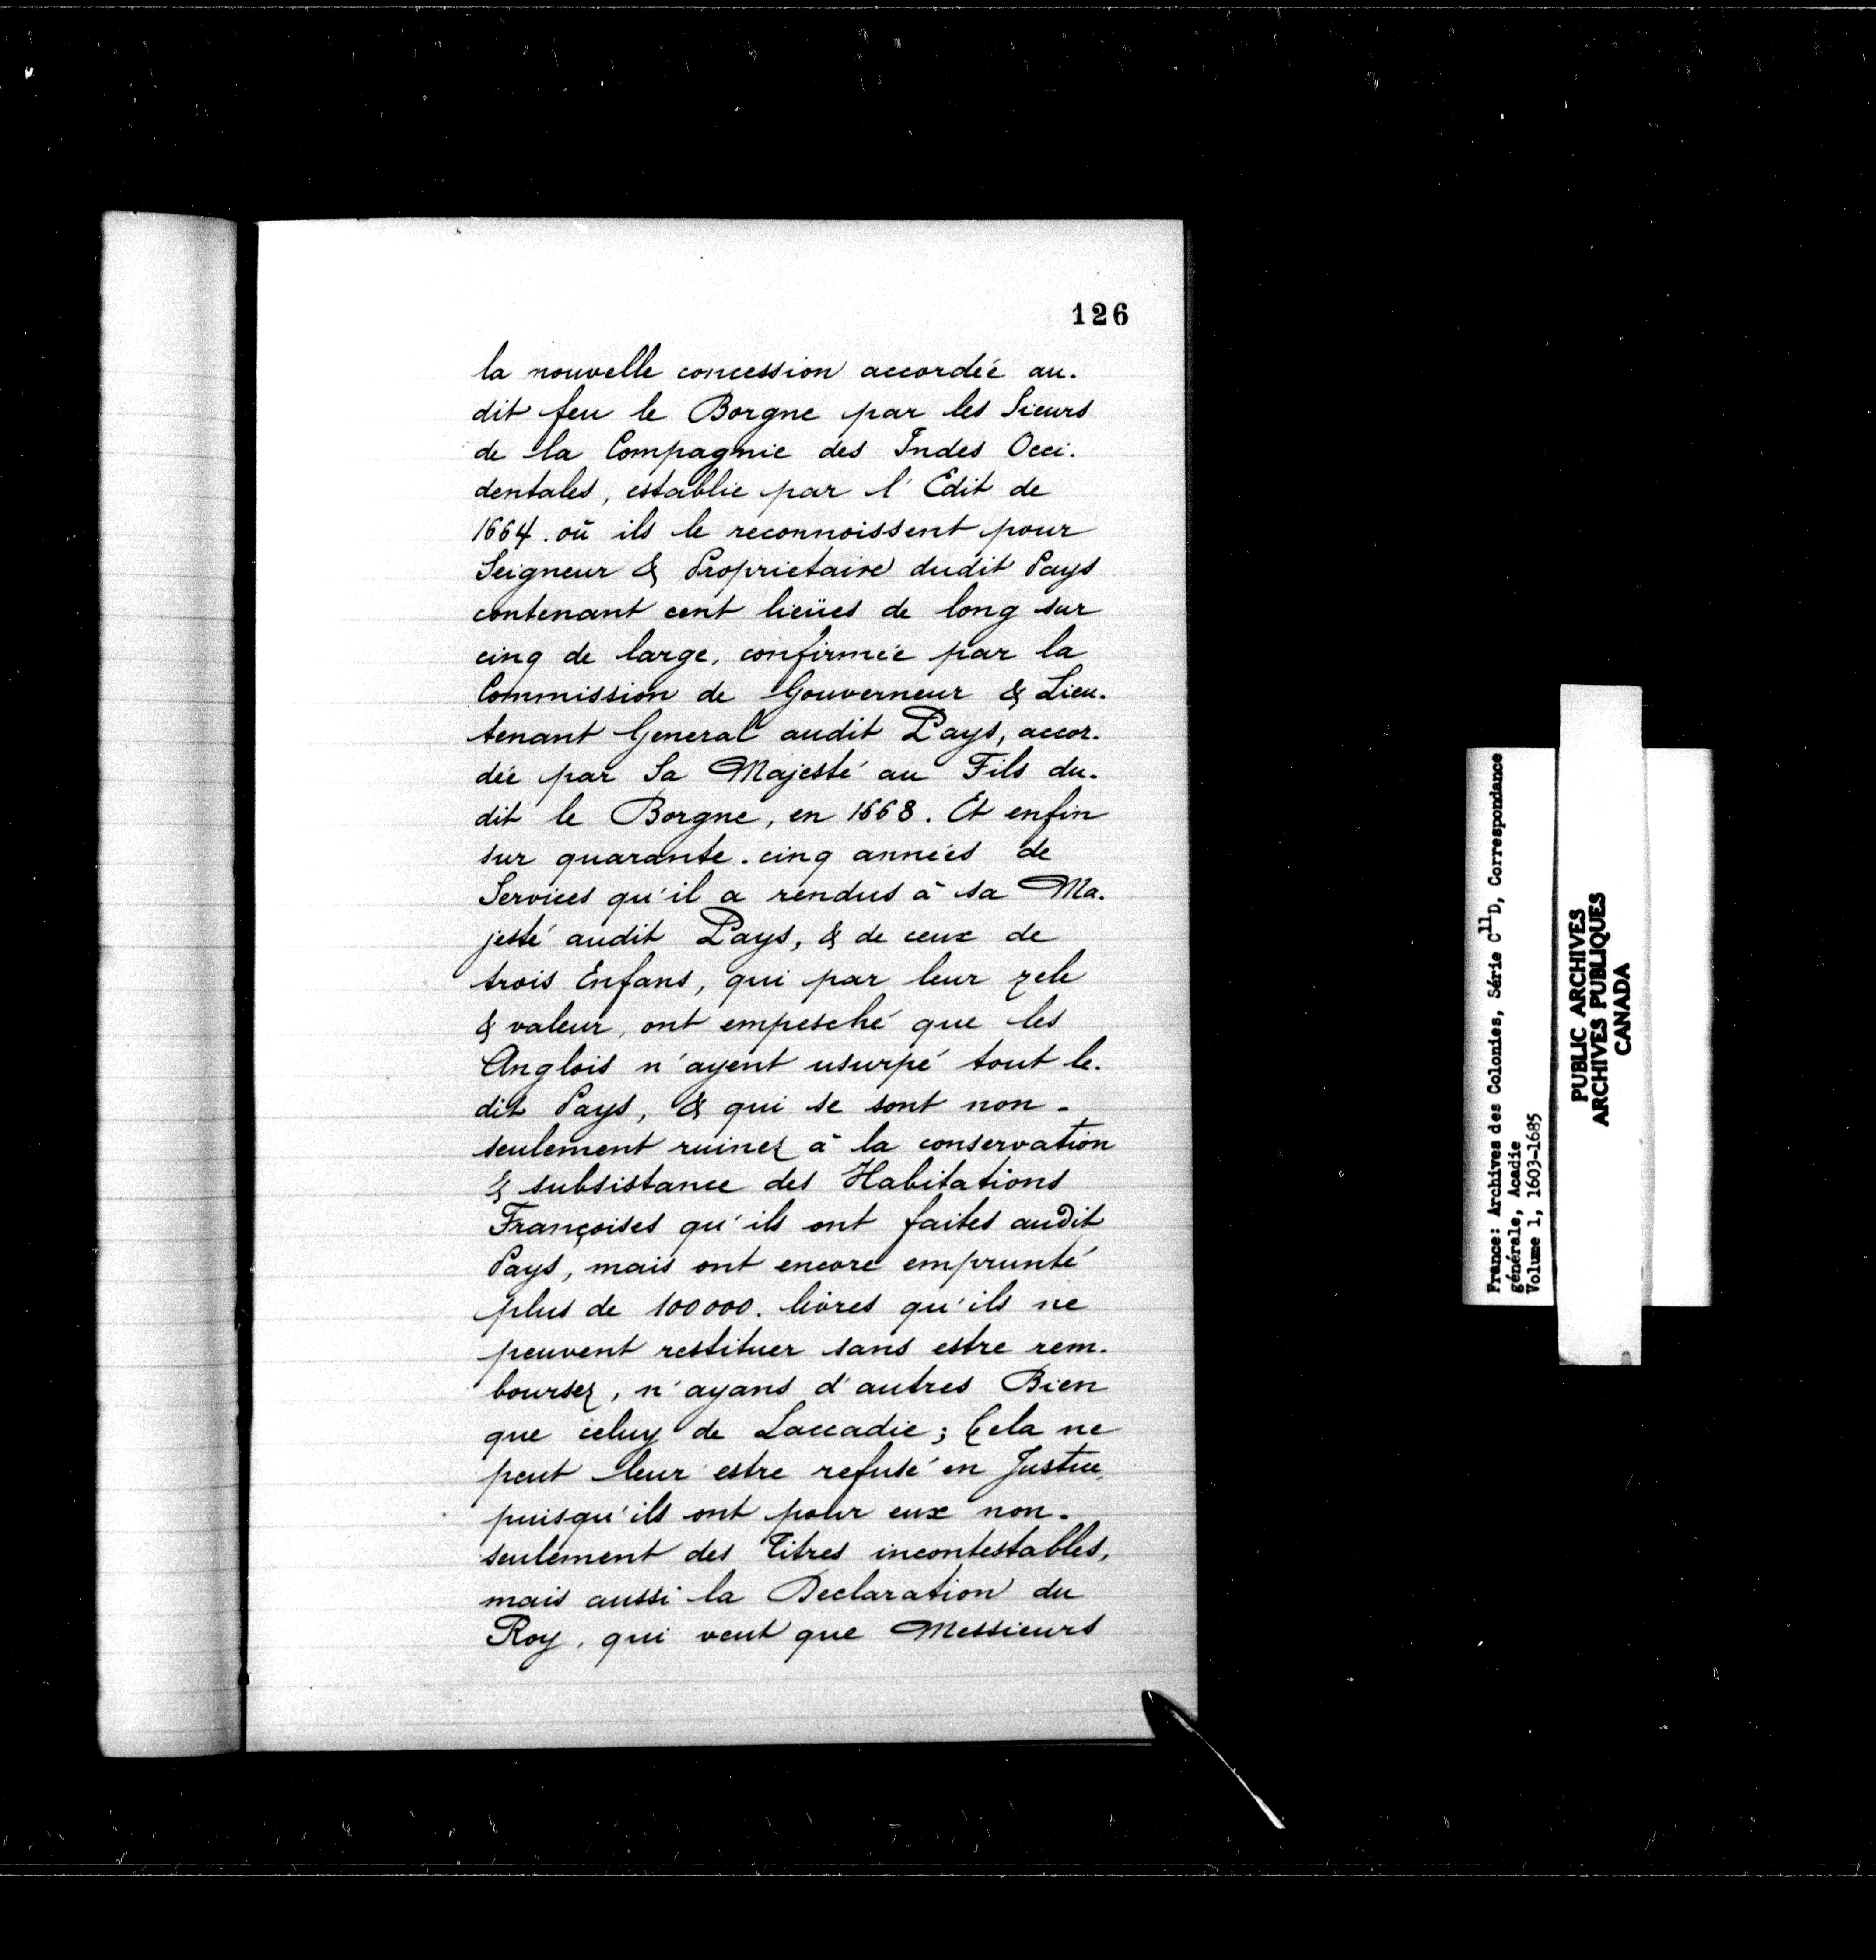 126
la nouvelle concession accordée au-
dit feu le Borgne par les Sieurs
de la Compagnie des Indes Occi-
dentales, establie par l'Edit de
1664. où ils le reconnoissent pour
Seigneur & Proprietaire dudit Pays
contenant cent lieües de long sur
cinq de large, confirmée par la
Commission de Gouverneur & Lieu-
tenant General audit Pays, accor-
dée par Sa Majesté au Fils du-
dit le Borgne, en 1668. Et enfin
sur quarante-cinq années de
Services qu'il a rendus à sa Ma-
jesté audit Pays, & de ceux de
trois Enfans, qui par leur zele
& valeur, ont empesché que les
Anglois n'ayent usurpé tout le-
dit Pays, & qui se sont non-
seulement ruinez à la conservation
& subsistance des Habitations
Françoises qu'ils ont faites audit
Pays, mais ont encore emprunté
plus de 100000. livres qu'ils ne
peuvent restituer sans estre rem-
boursez, n'ayans d'autres Bien
que celuy de Laccadie; Cela ne
peut leur estre refusé en Justice,
puisqu'ils ont pour eux non-
seulement des Titres incontestables,
mais aussi la Declaration du
Roy, qui veut que Messieurs
France: Archives des Colonies, Série C11D, Correspondance
générale, Acadie
Volume 1, 1603-1685
PUBLIC ARCHIVES
ARCHIVES PUBLIQUES
CANADA